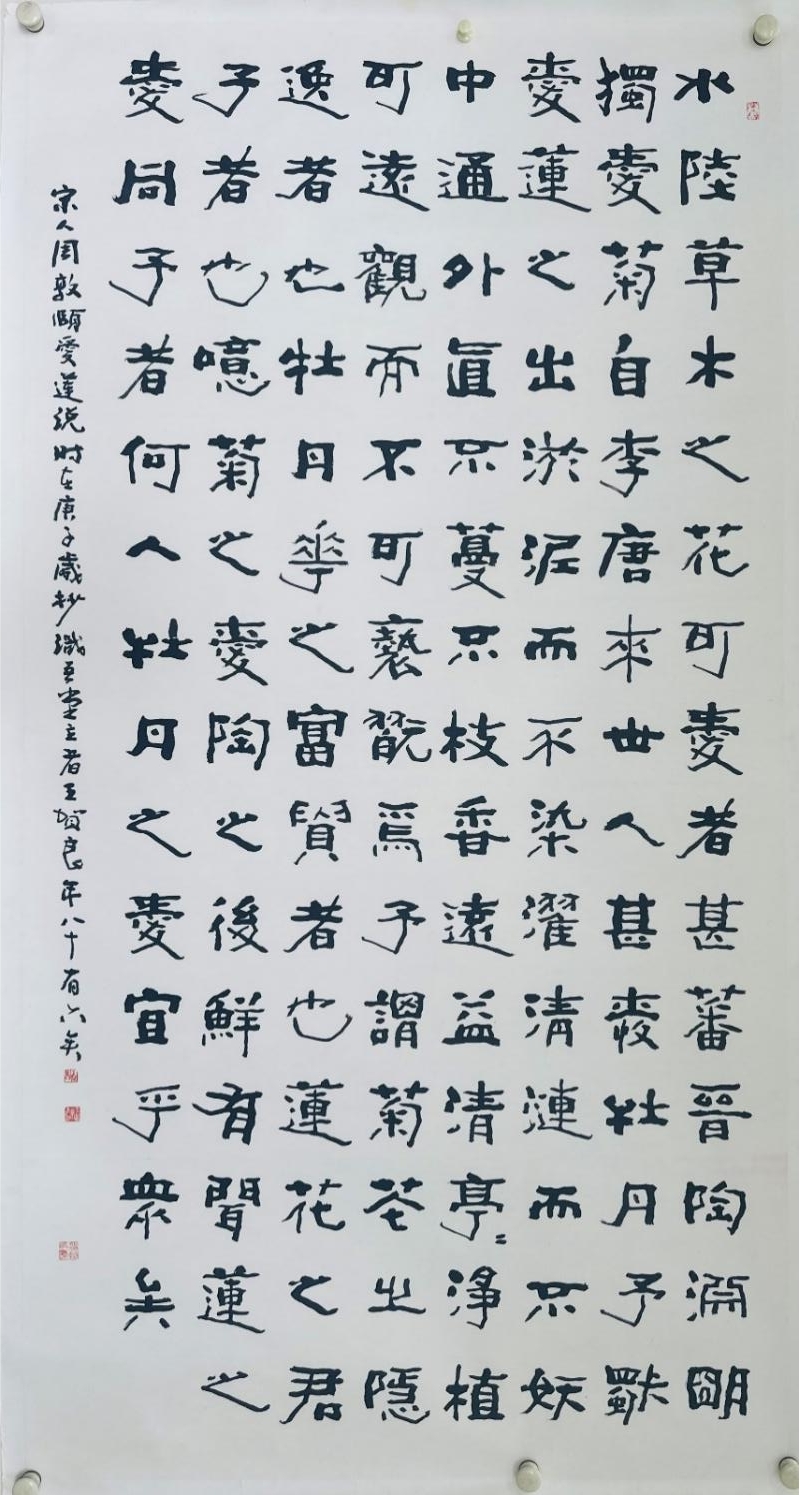 水陸草木之花可愛者甚蕃晉陶淵明
獨愛菊自李唐來世人甚愛牡丹予獨
愛蓮之出淤泥而不染濯清漣而不妖
中通外直不蔓不枝香遠益清亭〻淨植
可遠觀而不可褻翫焉予謂菊花之隱
逸者也牡丹華之富貴者也蓮花之君
子者也噫菊之愛陶之後鮮有聞蓮之
愛同予者何人牡丹之愛宜乎眾矣
宋人周敦頤愛蓮説時在庚子歲杪識吾堂主者王賀良年八十有六矣